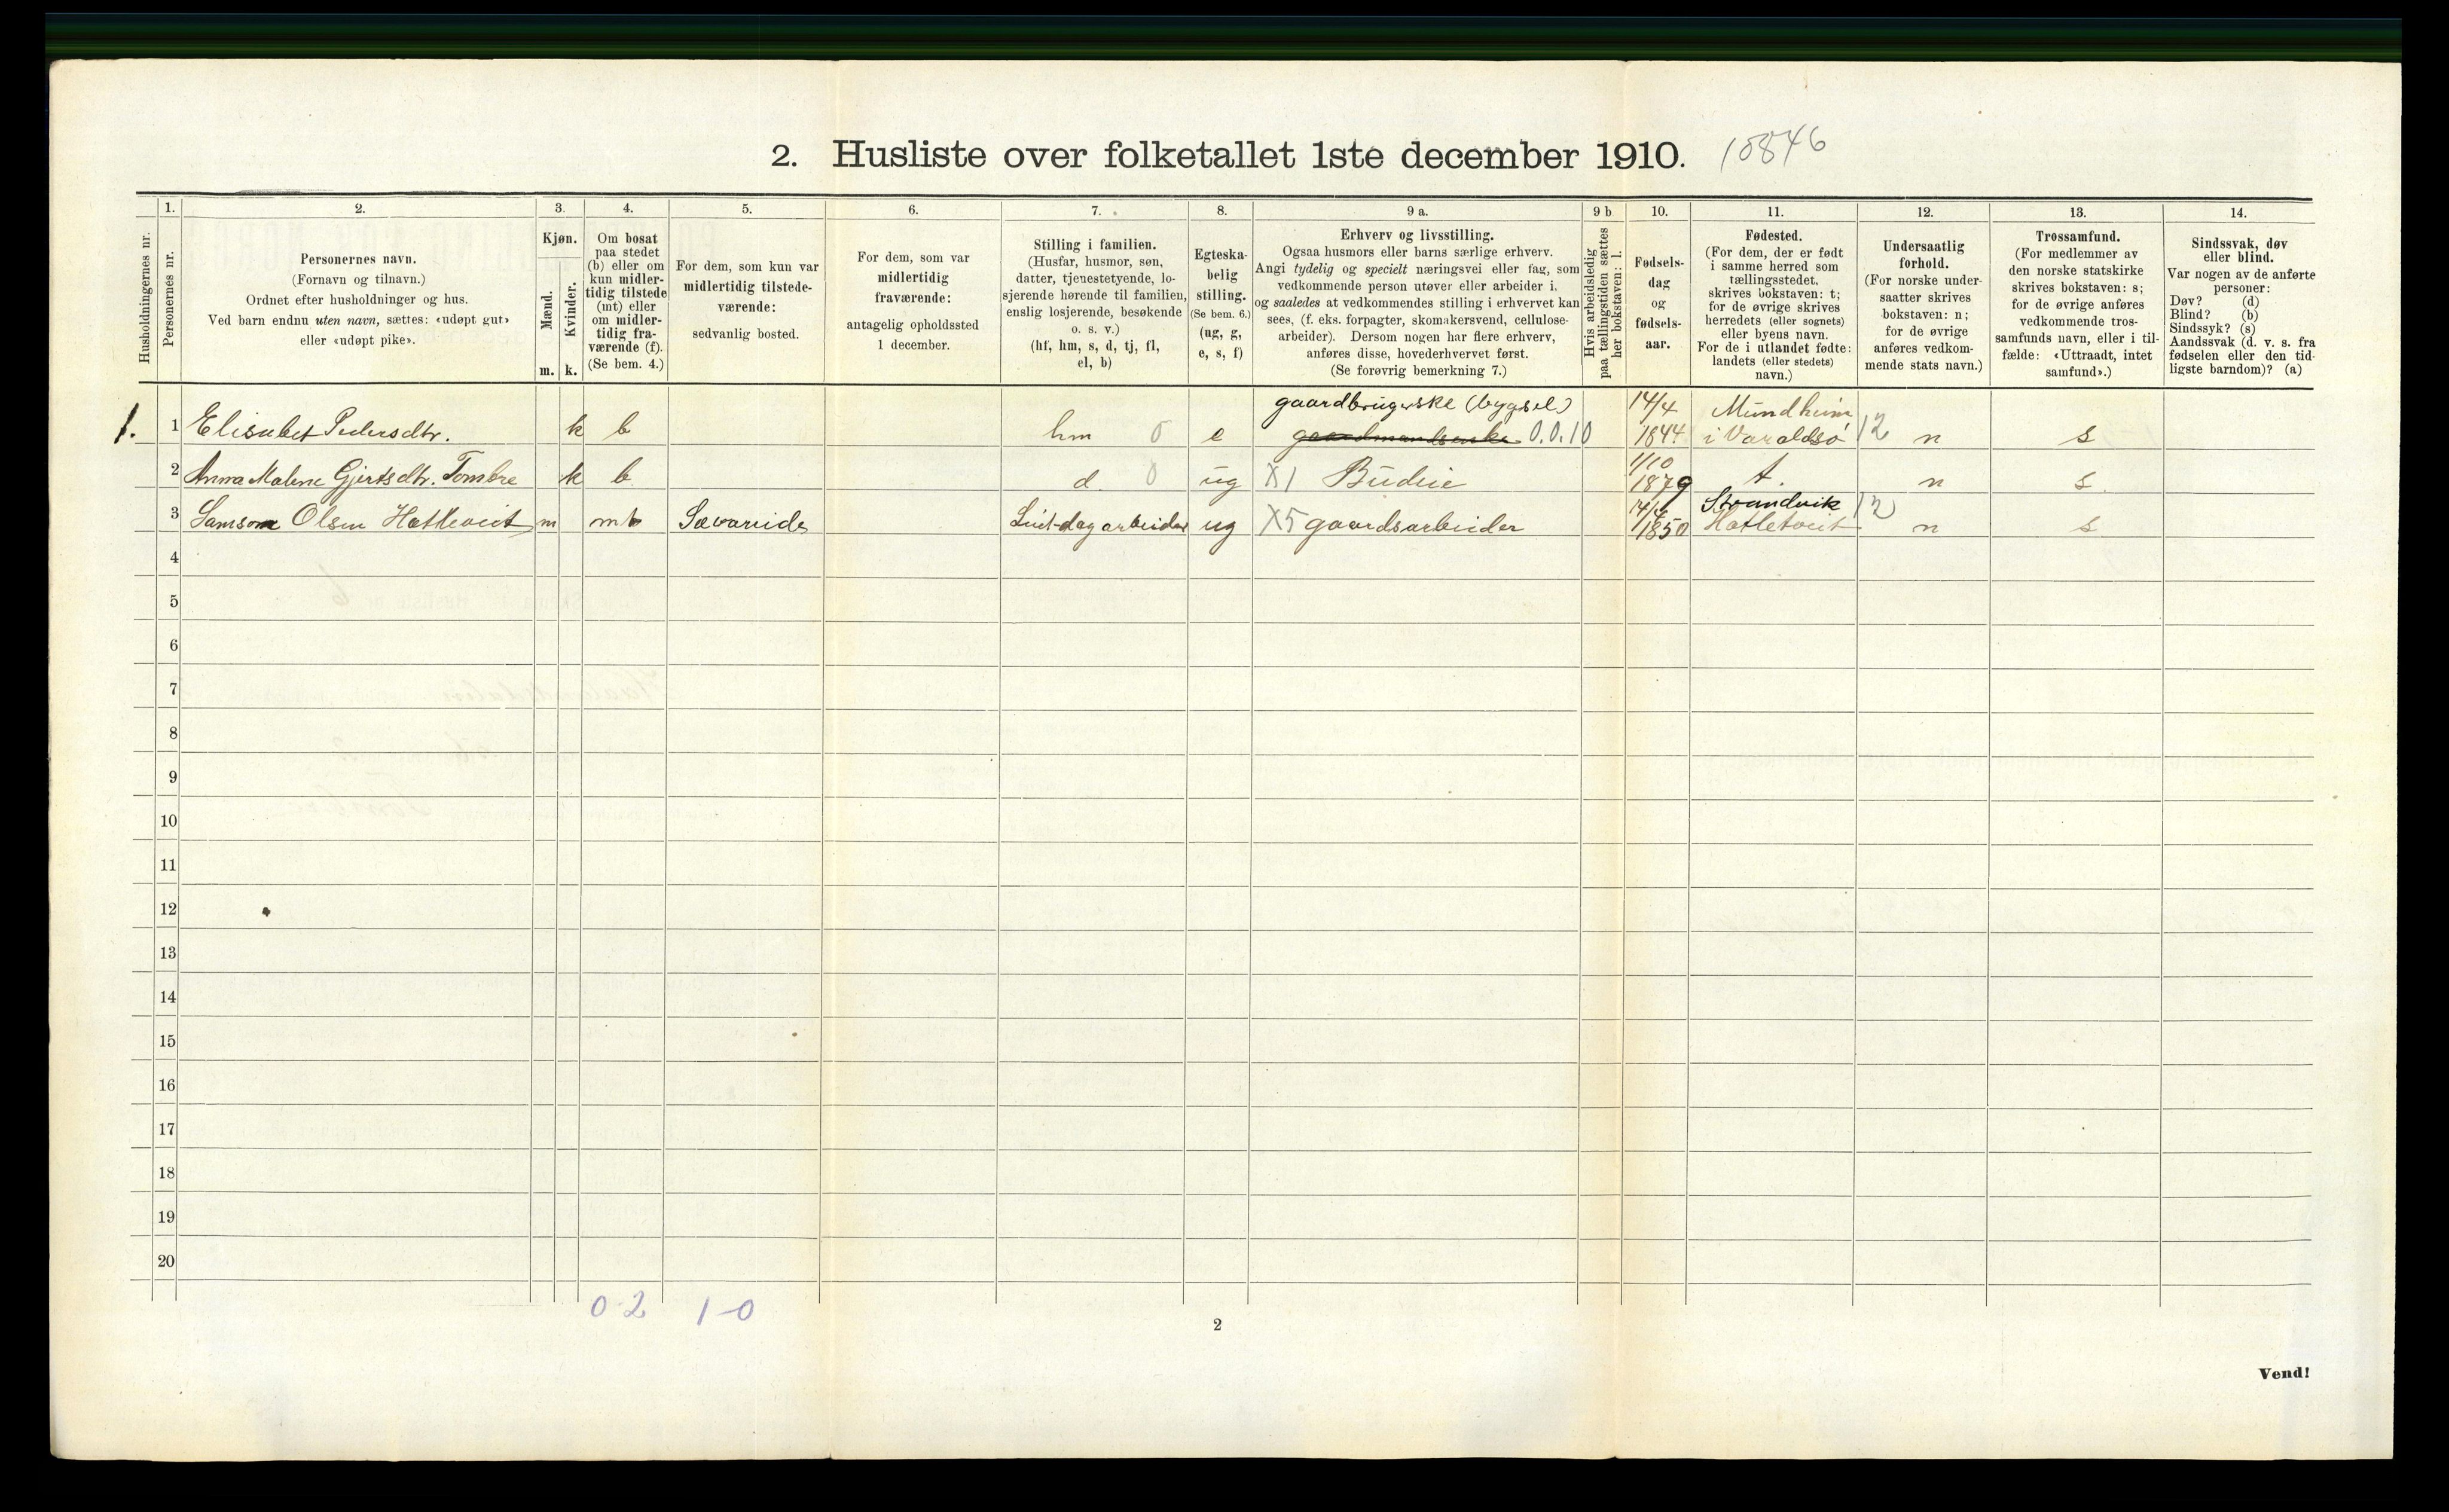 2. Husliste over folketallet 1ste december 1910. 10846
Husholdningernes nr.
1.
Personernes nr.
2.
Personernes navn.
(Fornavn og tilnavn.)
Ordnet efter husholdninger og hus.
Ved barn endnu uten navn, sættes: «udøpt gut»
eller «udøpt pike».
3.
Kjøn.
Mænd.
Kvinder.
m. k.
4.
Om bosat
paa stedet
(b) eller om
kun midler-
tidig tilstede
(mt) eller
om midler-
tidig fra-
værende (f).
(Se bem. 4.)
5.
For dem, som kun var
midlertidig tilstede-
værende:
sedvanlig bosted.
6.
For dem, som var
midlertidig
fraværende:
antagelig opholdssted
1 december.
7.
Stilling i familien.
(Husfar, husmor, søn,
datter, tjenestetyende, lo-
sjerende hørende til familien,
enslig losjerende, besøkende
o. s. v.)
(hf, hm, s, d, tj, fl,
el, b)
8.
Egteska-
belig
stilling.
(Se bem. 6.)
(ug, g,
e, s, f)
9 a.
Erhverv og livsstilling.
Ogsaa husmors eller barns særlige erhverv.
Angi tydelig og specielt næringsvei eller fag, som
vedkommende person utøver eller arbeider i,
og saaledes at vedkommendes stilling i erhvervet kan
sees, (f. eks. forpagter, skomakersvend, cellulose-
arbeider). Dersom nogen har flere erhverv,
anføres disse, hovederhvervet først.
(Se forøvrig bemerkning 7.)
9 b
Hvis arbeidsledig
paa tællingstiden sættes
her bokstaven: l.
10.
Fødsels-
dag
og
fødsels-
aar.
11.
Fødested.
(For dem, der er født
i samme herred som
tællingsstedet,
skrives bokstaven: t;
for de øvrige skrives
herredets (eller sognets)
eller byens navn.
For de i utlandet fødte:
landets (eller stedets)
navn.)
12.
Undersaatlig
forhold.
(For norske under-
saatter skrives
bokstaven: n;
for de øvrige
anføres vedkom-
mende stats navn.)
13.
Trossamfund.
(For medlemmer av
den norske statskirke
skrives bokstaven: s;
for de øvrige anføres
vedkommende tros-
samfunds navn, eller i til-
fælde: «Uttraadt, intet
samfund».)
14.
Sindssvak, døv
eller blind.
Var nogen av de anførte
personer:
Døv? (d)
Blind? (b)
Sindssyk? (s)
Aandssvak (d. v. s. fra
fødselen eller den tid-
ligste barndom)? (a)
gaardbrugerske (bygsel) 14/4 Mundheim
1. 1 Elisabet Pedersdtr. k b hm 0 e gaardmandsenke 0.0.10 1844 i Varaldsö 12 n s
1/10
2 Anna Malene Gjertsdtr. Tombre k b d. 0 ug X1 Budeie 1879 t. n s
14/4 Strandvik 12
3 Samson Olsen Hatletveit m mt Sævareide Leiet-dagarbeider ug X5 gaardsarbeider 1850 Hatletveit n s
4
5
6
7
8
9
10
11
12
13
14
15
16
17
18
19
20
0-2 1-0
2
Vend!